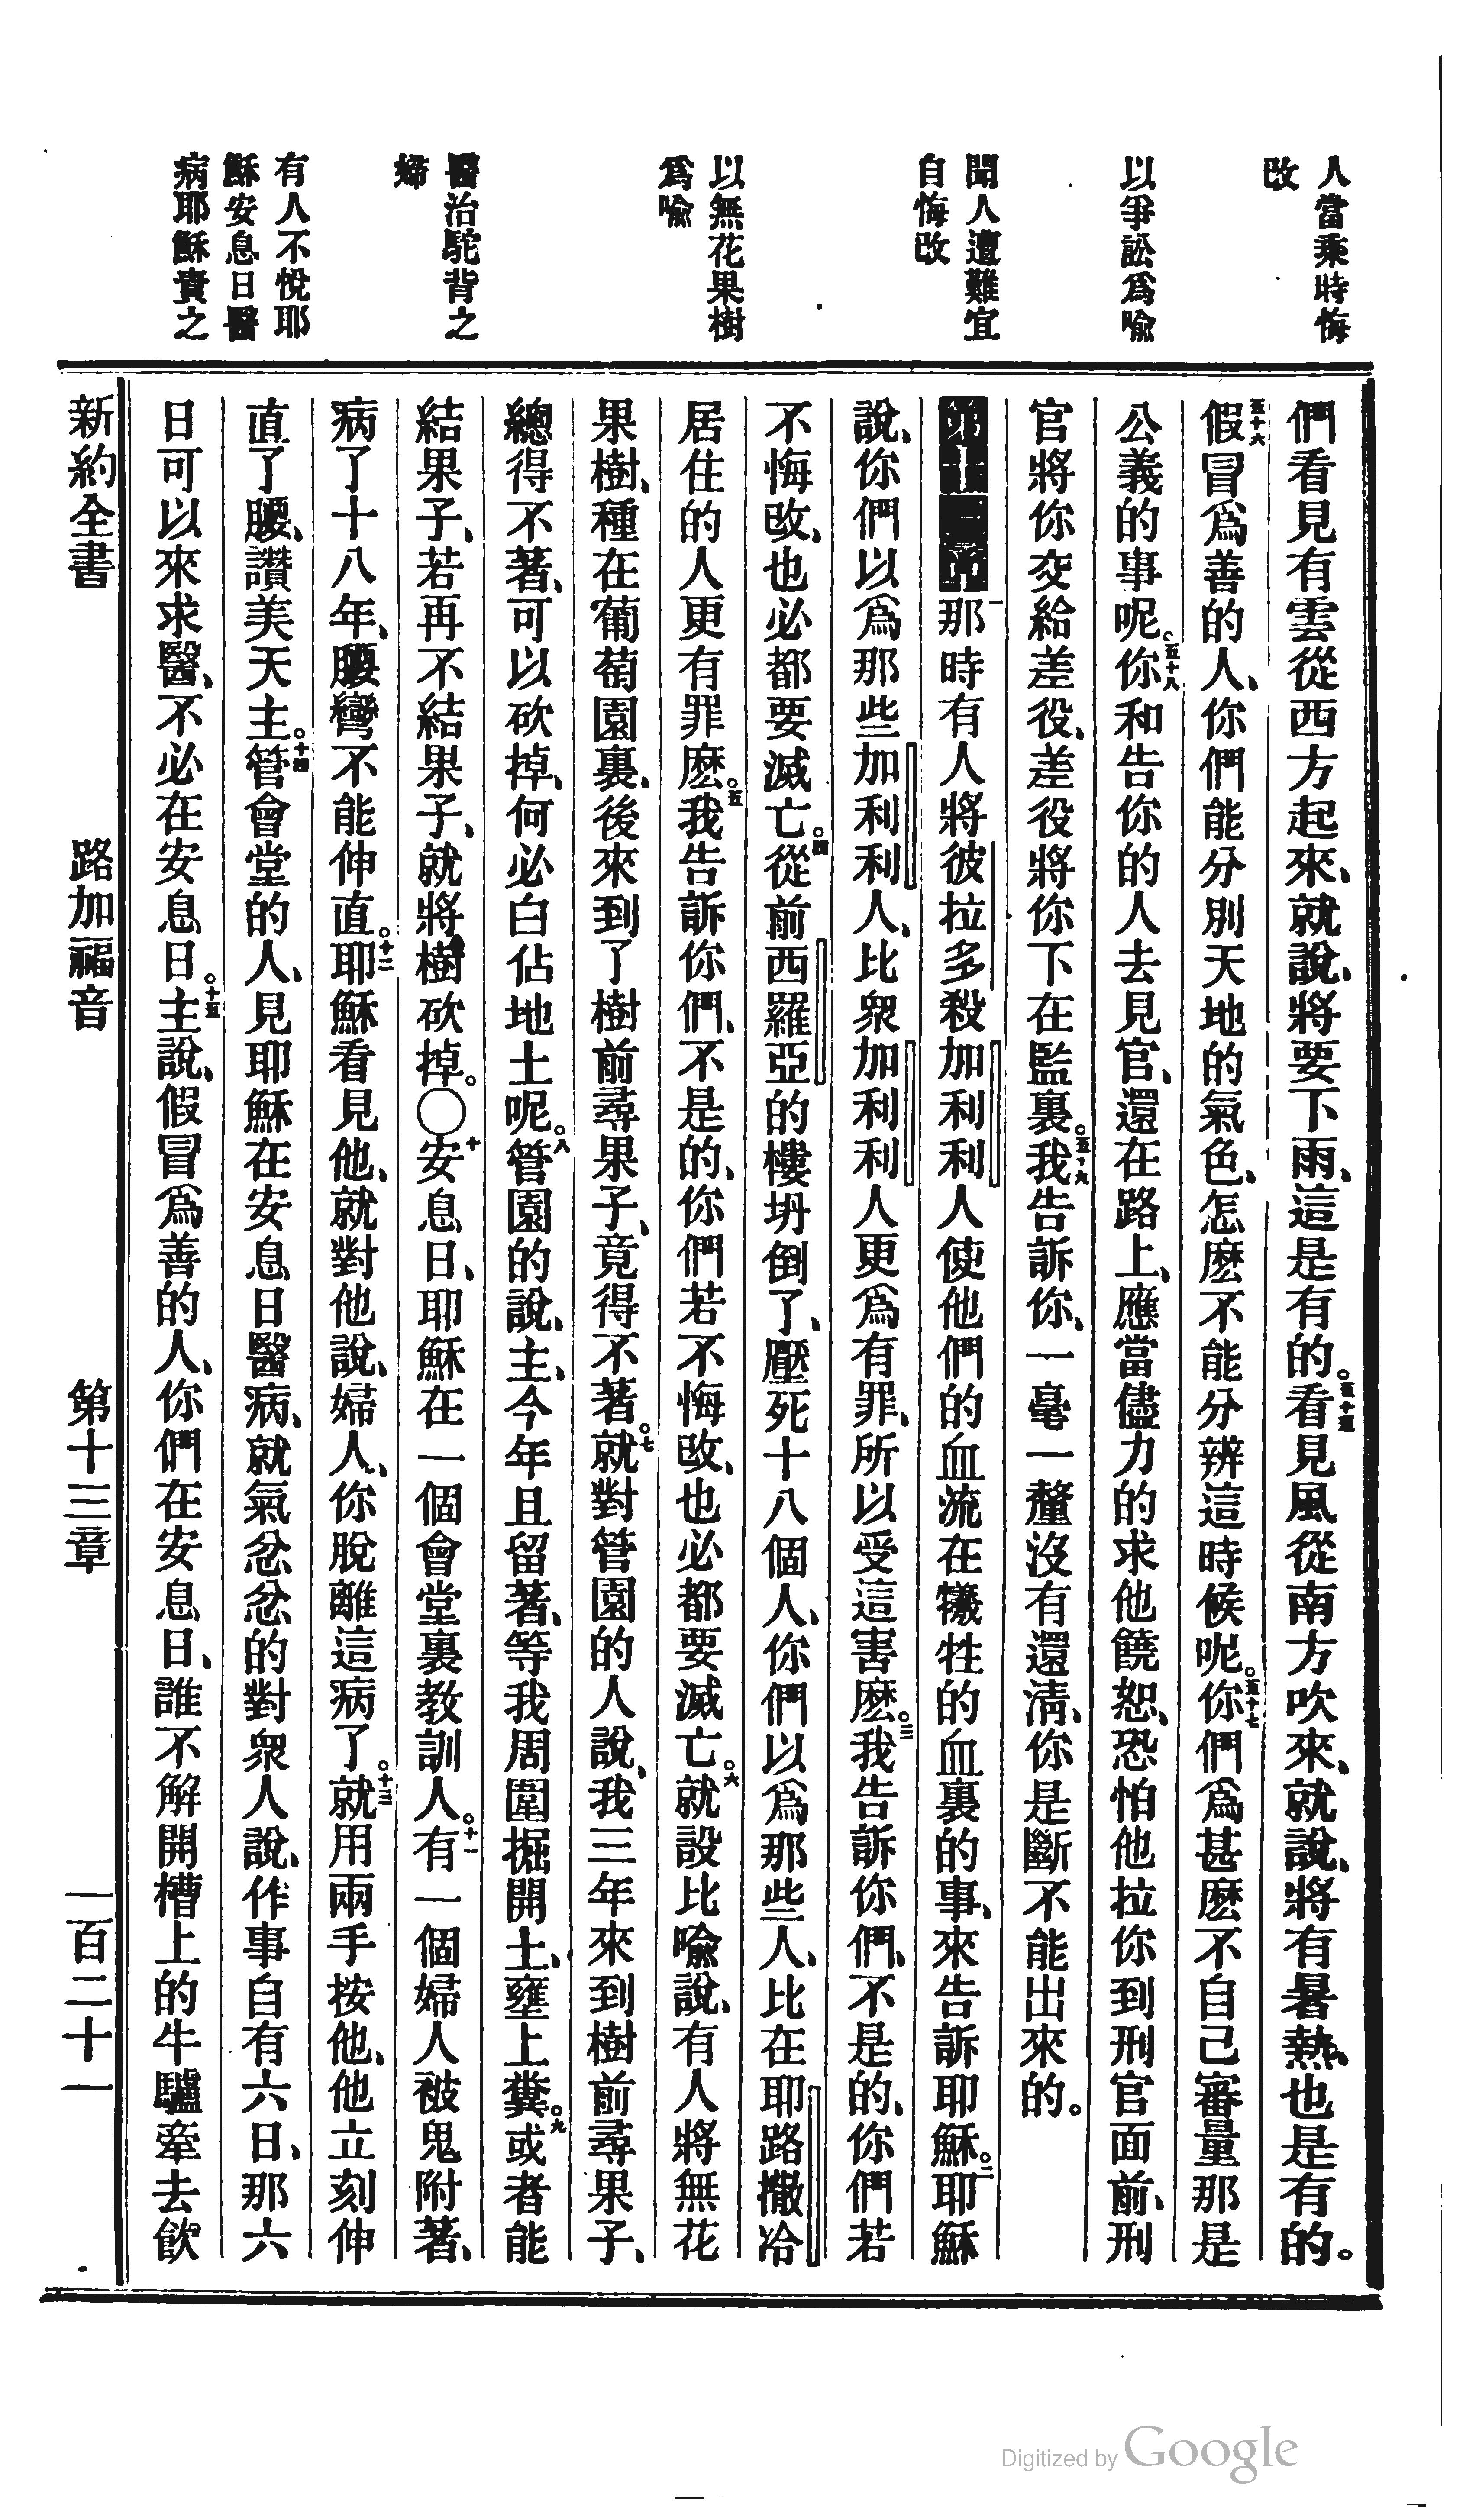 人當乘時悔
改
以爭訟爲喩
聞人遭難宜
自悔改
以無花果樹
爲喩
醫治駝背之
婦
有人不悅耶
穌安息日醫
病耶穌責之
們看見有雲從西方起來、就說、將要下雨、這是有的。五十五看見風從南方吹來、就說、將有暑熱、也是有的。
五十六假冒爲善的人、你們能分別天地的氣色、怎麽不能分辨這時候呢。五十七你們爲甚麽不自己審量那是
公義的事呢。五十八你和告你的人去見官、還在路上、應當儘力的求他饒恕、恐怕他拉你到刑官面前、刑
官將你交給差役、差役將你下在監裏。五十九我告訴你、一毫一釐沒有還淸、你是斷不能出來的。
一那時有人將彼拉多殺加利利人使他們的血流在犧牲的血裏的事、來告訴耶穌。二耶穌
說、你們以爲那些加利利人、比衆加利利人更爲有罪、所以受這害麽。三我告訴你們、不是的、你們若
不悔改、也必都要滅亡。四從前西羅亞的樓坍倒了、壓死十八個人、你們以爲那些人、比在耶路撒冷
居住的人更有罪麽。五我告訴你們、不是的、你們若不悔改、也必都要滅亡。六就設比喩說、有人將無花
果樹、種在葡萄園裏、後來到了樹前尋果子、竟得不著。七就對管園的人說、我三年來到樹前尋果子、
總得不著、可以砍掉、何必白佔地土呢。八管園的說、主、今年且留著、等我周圍掘開土、壅上糞。九或者能
結果子、若再不結果子、就將樹砍掉。〇十安息日、耶穌在一個會堂裏敎訓人。十一有一個婦人被鬼附著、
病了十八年、腰彎不能伸直。十二耶穌看見他、就對他說、婦人、你脫離這病了。十三就用兩手按他、他立刻伸
直了腰、讚美天主。十四管會堂的人、見耶穌在安息日醫病、就氣忿忿的對衆人說、作事自有六日、那六
日可以來求醫、不必在安息日。十五主說、假冒爲善的人、你們在安息日、誰不解開槽上的牛驢牽去飮
新約全書 路加福音 第十三章 一百二十一
Digitized by Google